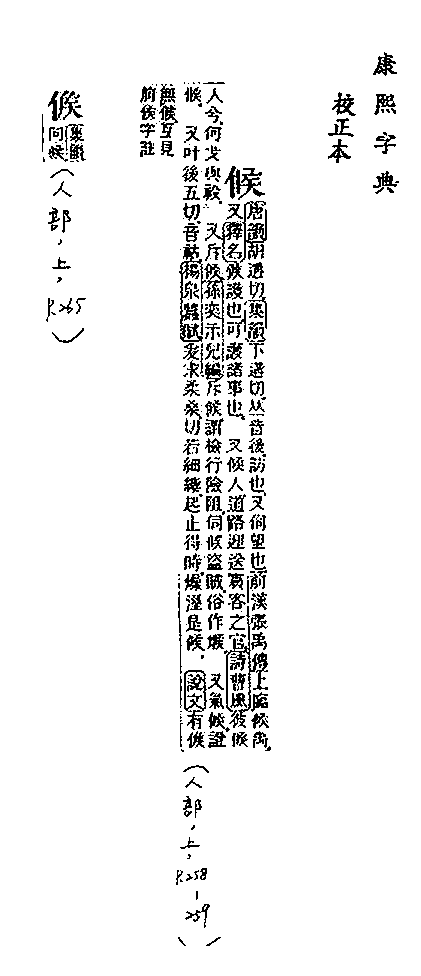 康熙字典
校正本
候
唐韻胡遘切集韻下遘切𠀤音後訪也又伺望也前漢張禹傳上臨候禹
又釋名候護也可護諸事也 又候人道路迎送賓客之官詩曹風彼候
人兮何戈與祋 又斥候孫奕示兒編斥候謂檢行險阻伺候盜賊俗作堠 又氣候證
候 又叶後五切音祜楊泉蠶賦爰求柔桑切若細縷起止得時燥溼是候 說文有𠋫
無候互見
前𠋫字註
(人部,上,P.258-259)
候
集韻
同候
(人部,上,P.265)